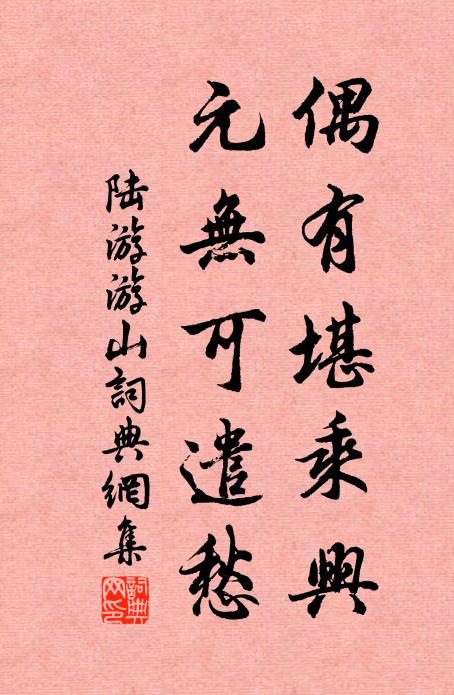 偶有堪乘興
元無可遣愁
陆游游山詞典網集
詞典
网印